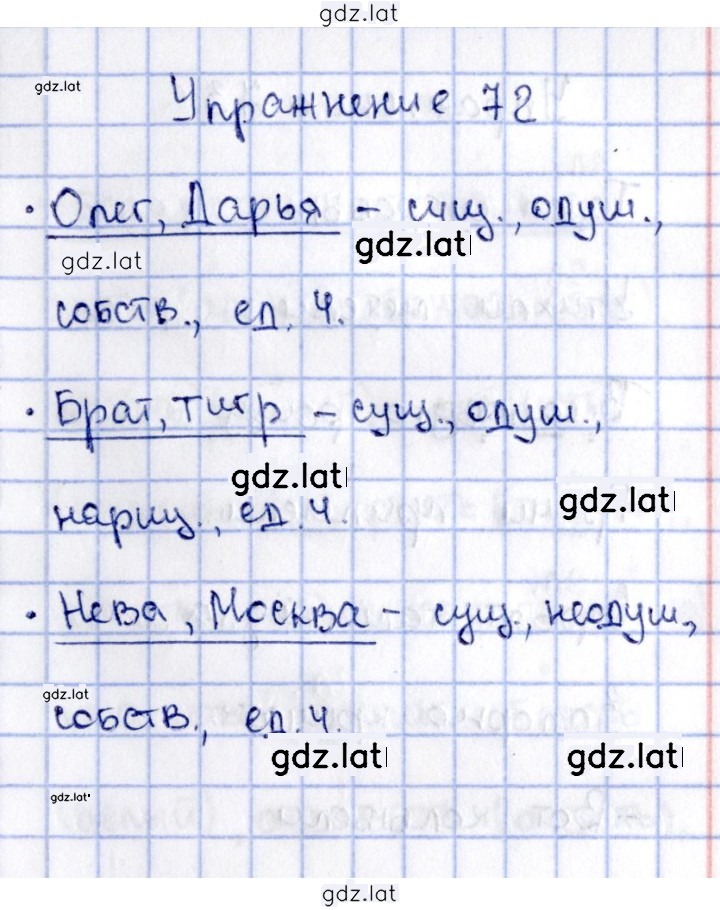 gdz.lat
gdz.lat
Упражнение 72
• Олег, Дарья – сущ., одуш.,
gdz.lat
gdz.lat
собств., ед. ч.
• Брат, тигр – сущ., одуш.,
gdz.lat
gdz.lat
нариц., ед. ч.
• Нева, Москва – сущ., неодуш.,
gdz.lat
собств., ед. ч.
gdz.lat
gdz.lat
gdz.lat
gdz.lat